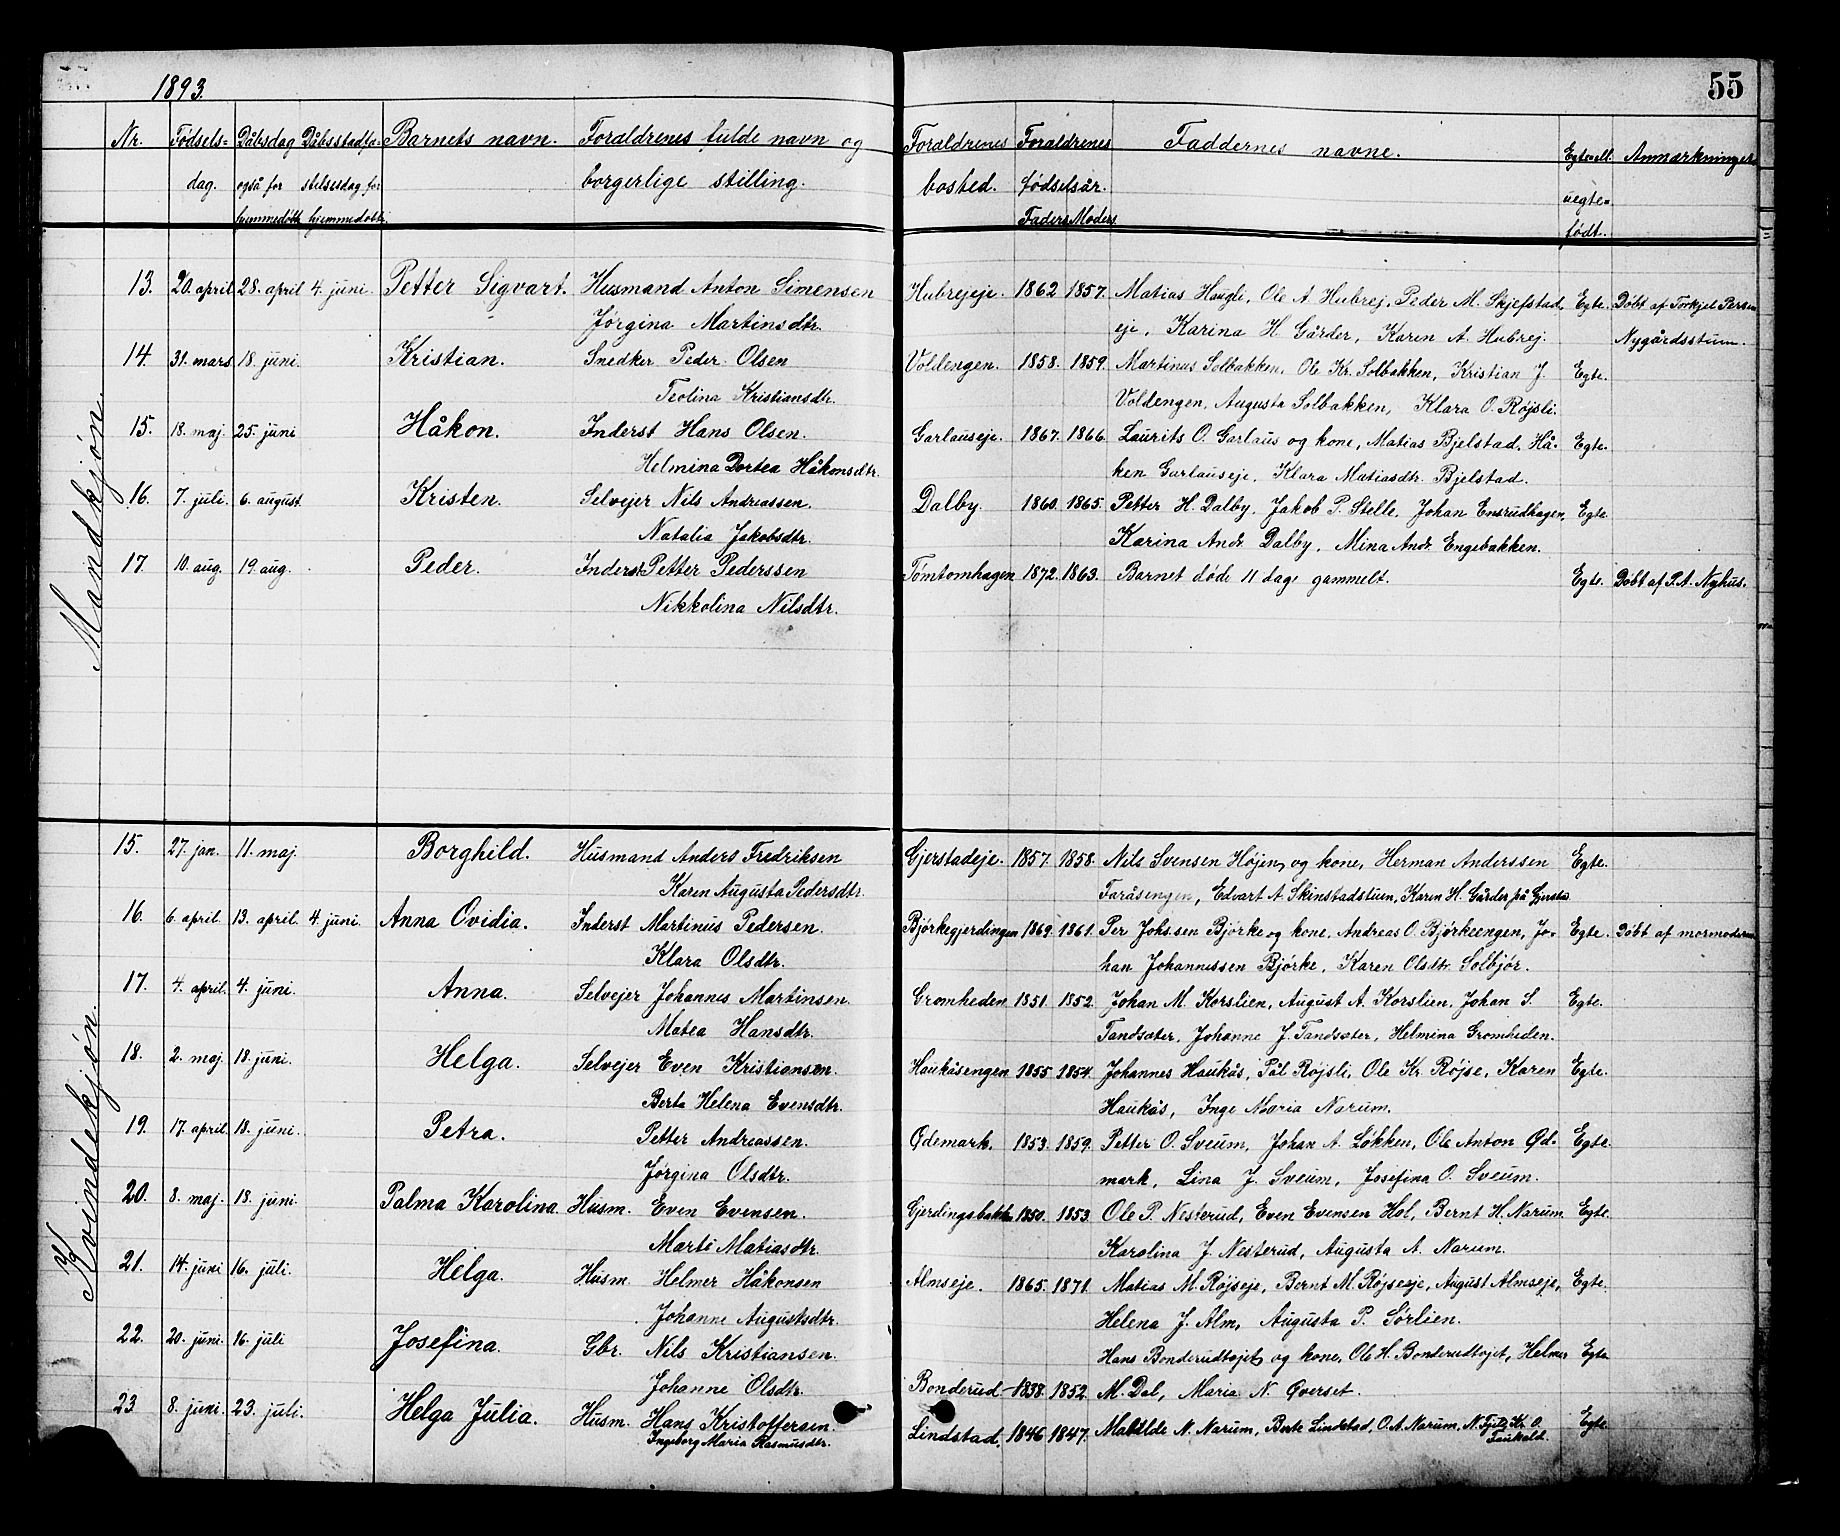 1893.
55
Nr. Fødsels= Dåbsdag Dåbsstadfæ- Barnets navn. Forældrenes fulde navn og Forældrenes Forældrenes Faddernes navne. Egte ell. Anmærkninger
dag. også for stelsesdag for borgerlige stilling. bosted. fødselsår. uegte=
hjemmedøbte hjemmedøbte. Faders Moders født.
Mandkjøn.
13. 20. april 28. april 4. juni Petter Sigvart. Husmand Anton Simensen Hubrejeje. 1862 1857. Matias Haugli, Ole A. Hubrej, Peder M. Skjefstad, Egte. Døbt af Torkjel Persen
Jørgina Martinsdtr. eje, Karina H. Gårder, Karen A. Hubrej. Nygårdsstuen.
14. 31. mars 18. juni. Kristian. Snedker Peder Olsen Voldengen. 1858. 1859. Martinus Solbakken, Ole Kr. Solbakken, Kristian J. Egte.
Teolina Kristiansdtr. Voldengen, Augusta Solbakken, Klara O. Røjsli.
15. 18. maj. 25. juni Håkon. Inderst Hans Olsen. Garlauseje. 1867. 1866. Laurits O. Garlaus og kone, Matias Bjelstad, Hå- Egte.
Helmina Dortea Håkonsdtr. ken Garlauseje, Klara Matiasdtr. Bjelstad.
16. 7. juli. 6. august. Kristen. Selvejer Nils Andreassen. Dalby. 1860. 1865. Petter H. Dalby, Jakob P. Stelle, Johan Ensrudhagen, Egte
Natalia Jakobsdtr. Karina Andr. Dalby, Mina Andr. Engebakken.
17. 10. aug. 19. aug. Peder. Inderst Petter Pederssen Tømtomhagen 1872. 1863. Barnet døde 11 dage gammelt. Egte. Døbt af P. A. Nyhus.
Nikkolina Nilsdtr.
Kvindekjøn.
15. 27. jan. 11. maj. Borghild. Husmand Anders Fredriksen Gjerstadeje. 1857. 1858. Nils Svensen Højen og kone, Herman Anderssen Egte.
Karen Augusta Pedersdtr. Taråsengen, Edvart A. Skinstadstuen, Karen H. Gårder på Gjerstad
16. 6. april. 13. april. 4. juni. Anna Ovidia. Inderst Martinus Pedersen. Bjørkegjerdingen 1869. 1861. Per Johs.sen Bjørke og kone, Andreas O. Bjørkeengen, Jo- Egte. Døbt af mormoderen
Klara Olsdtr. han Johannessen Bjørke, Karen Olsdtr. Solbjør.
17. 4. april. 4. juni. Anna. Selvejer Johannes Martinsen. Gromheden. 1851. 1852. Johan M. Korslien, August A. Korslien, Johan S. Egte.
Matea Hansdtr. Tandsæter, Johanne J. Tandsæter, Helmina Gromheden.
18. 2. maj. 18. juni. Helga. Selvejer Even Kristiansen. Haukåsengen 1855. 1854. Johannes Haukås, Pål Røjsli, Ole Kr. Røjse, Karen Egte.
Berta Helena Evensdtr. Haukås, Inge Maria Narum.
19. 17. april 18. juni. Petra. Petter Andreassen. Ødemark. 1853. 1859. Petter O. Sveum, Johan A. Løkken, Ole Anton Ød- Egte.
Jørgina Olsdtr. mark, Lina J. Sveum, Josefina O. Sveum.
20. 8. maj. 18. juni. Palma Karolina. Husm. Even Evensen. Gjerdingsbakken 1850. 1853. Ole P. Nesterud, Even Evensen Hol, Bernt H. Narum Egte.
Marte Matiasdtr. Karolina J. Nesterud, Augusta A. Narum.
21. 14. juni 16. juli. Helga. Husm. Helmer Håkonsen Almseje. 1865. 1871. Matias M. Røjseje, Bernt M. Røjseeje, August Almseje, Egte.
Johanne Augustsdtr. Helena J. Alm, Augusta P. Sørlien.
22. 20. juni. 16. juli Josefina. Gbr. Nils Kristiansen. Hans Bonderudtøjet og kone, Ole H. Bonderudtøjet, Helmer Egte
Johanne Olsdtr. Bonderud 1838. 1852. M. Dal, Maria N. Øverset.
23 8. juni. 23. juli. Helga Julia. Husm. Hans Kristoffersen Lindstad. 1846 1847. Matilde N. Narum, Berte Lindstad, O. A. Narum, Kr. O. Egte
Ingeborg Maria Rasmusdtr.